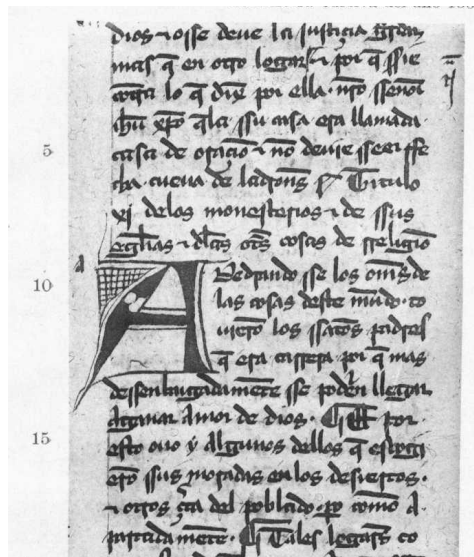 dios ⁊ osse deue la justiçia
mas q̄ en otro logar ⁊ por q̄ sse
lo q̄ dixo por ella. nr̄o ssenor
ihū xp̄o q̄ la ssu casa era llamada.
casa de oraçiō ⁊ nō deuie sseer ffe
5
cha. cueua de ladron̄s Titulo
xj delos monesterios ⁊ de ssus
egl̄ias ⁊ dl̄as ot̄s cosas de rreligiō
a
ARedrando sse los om̄s de
10
las cosas deste mūdo. to
uierō los ssātos padres
q̄ era carrera por q̄ mas
dessenbargadamēte sse podrīe llegar
aganar amor de dios. por
15
esto ouo y algunos dellos q̄ escogi
erō ssus moradas en los desiertos.
⁊ otros çca del poblado. po como a
partadamente. Tales logares co